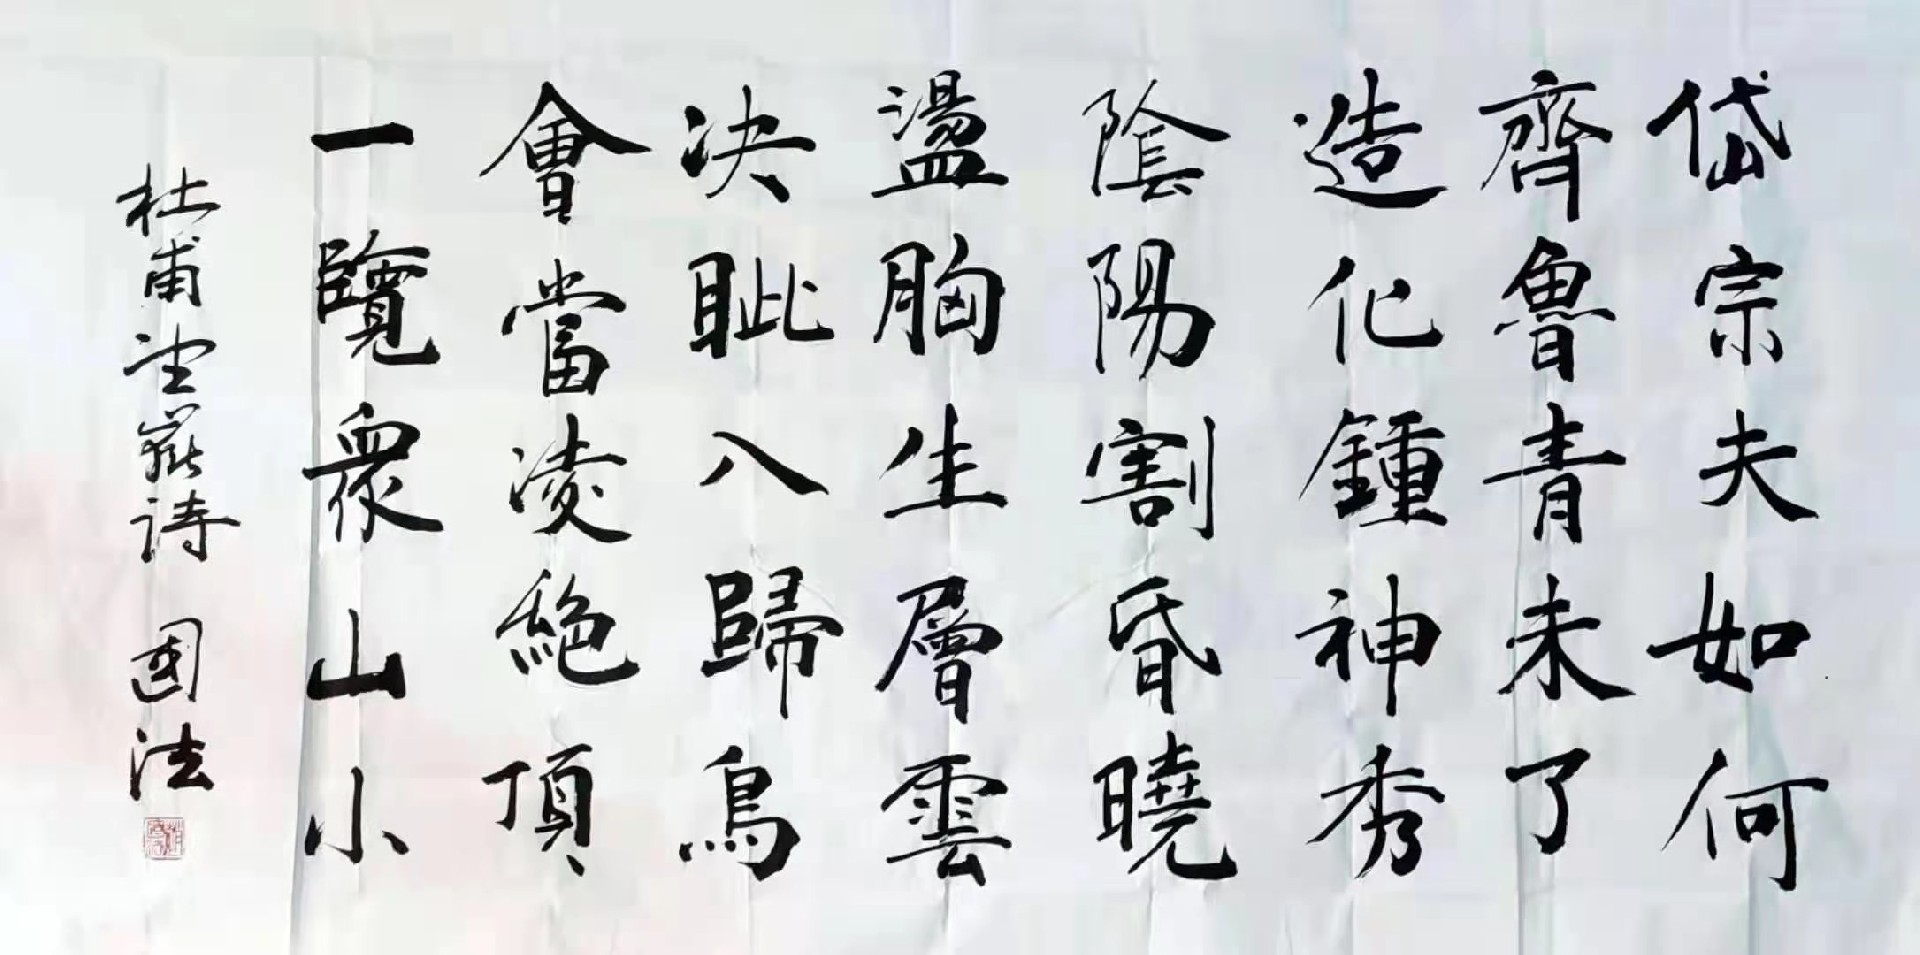 岱宗夫如何
齊魯青未了
造化鍾神秀
陰陽割昏曉
盪胸生層雲
决眦入歸鳥
會當凌絶頂
一覽衆山小
杜甫望嶽詩 國法